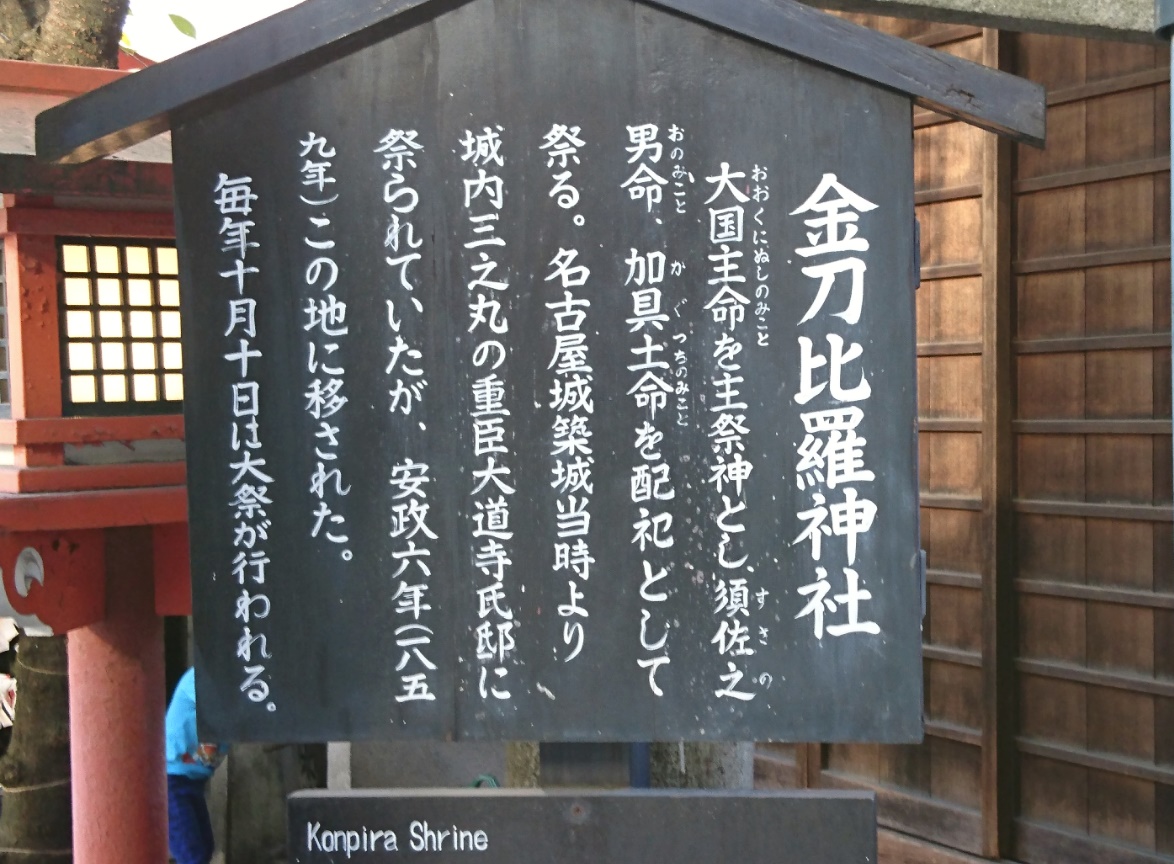 金刀比羅神社
大国主命を主祭神とし、須佐之
おおくにぬしのみこと すさの
男命、加具土命を配祀として
おのみこと かぐつちのみこと
祭る。名古屋城築城当時より
城内三之丸の重臣大道寺氏邸に
祭られていたが、安政六年(一八五
九年)この地に移された。
毎年十月十日は大祭が行われる。
Konpira Shrine